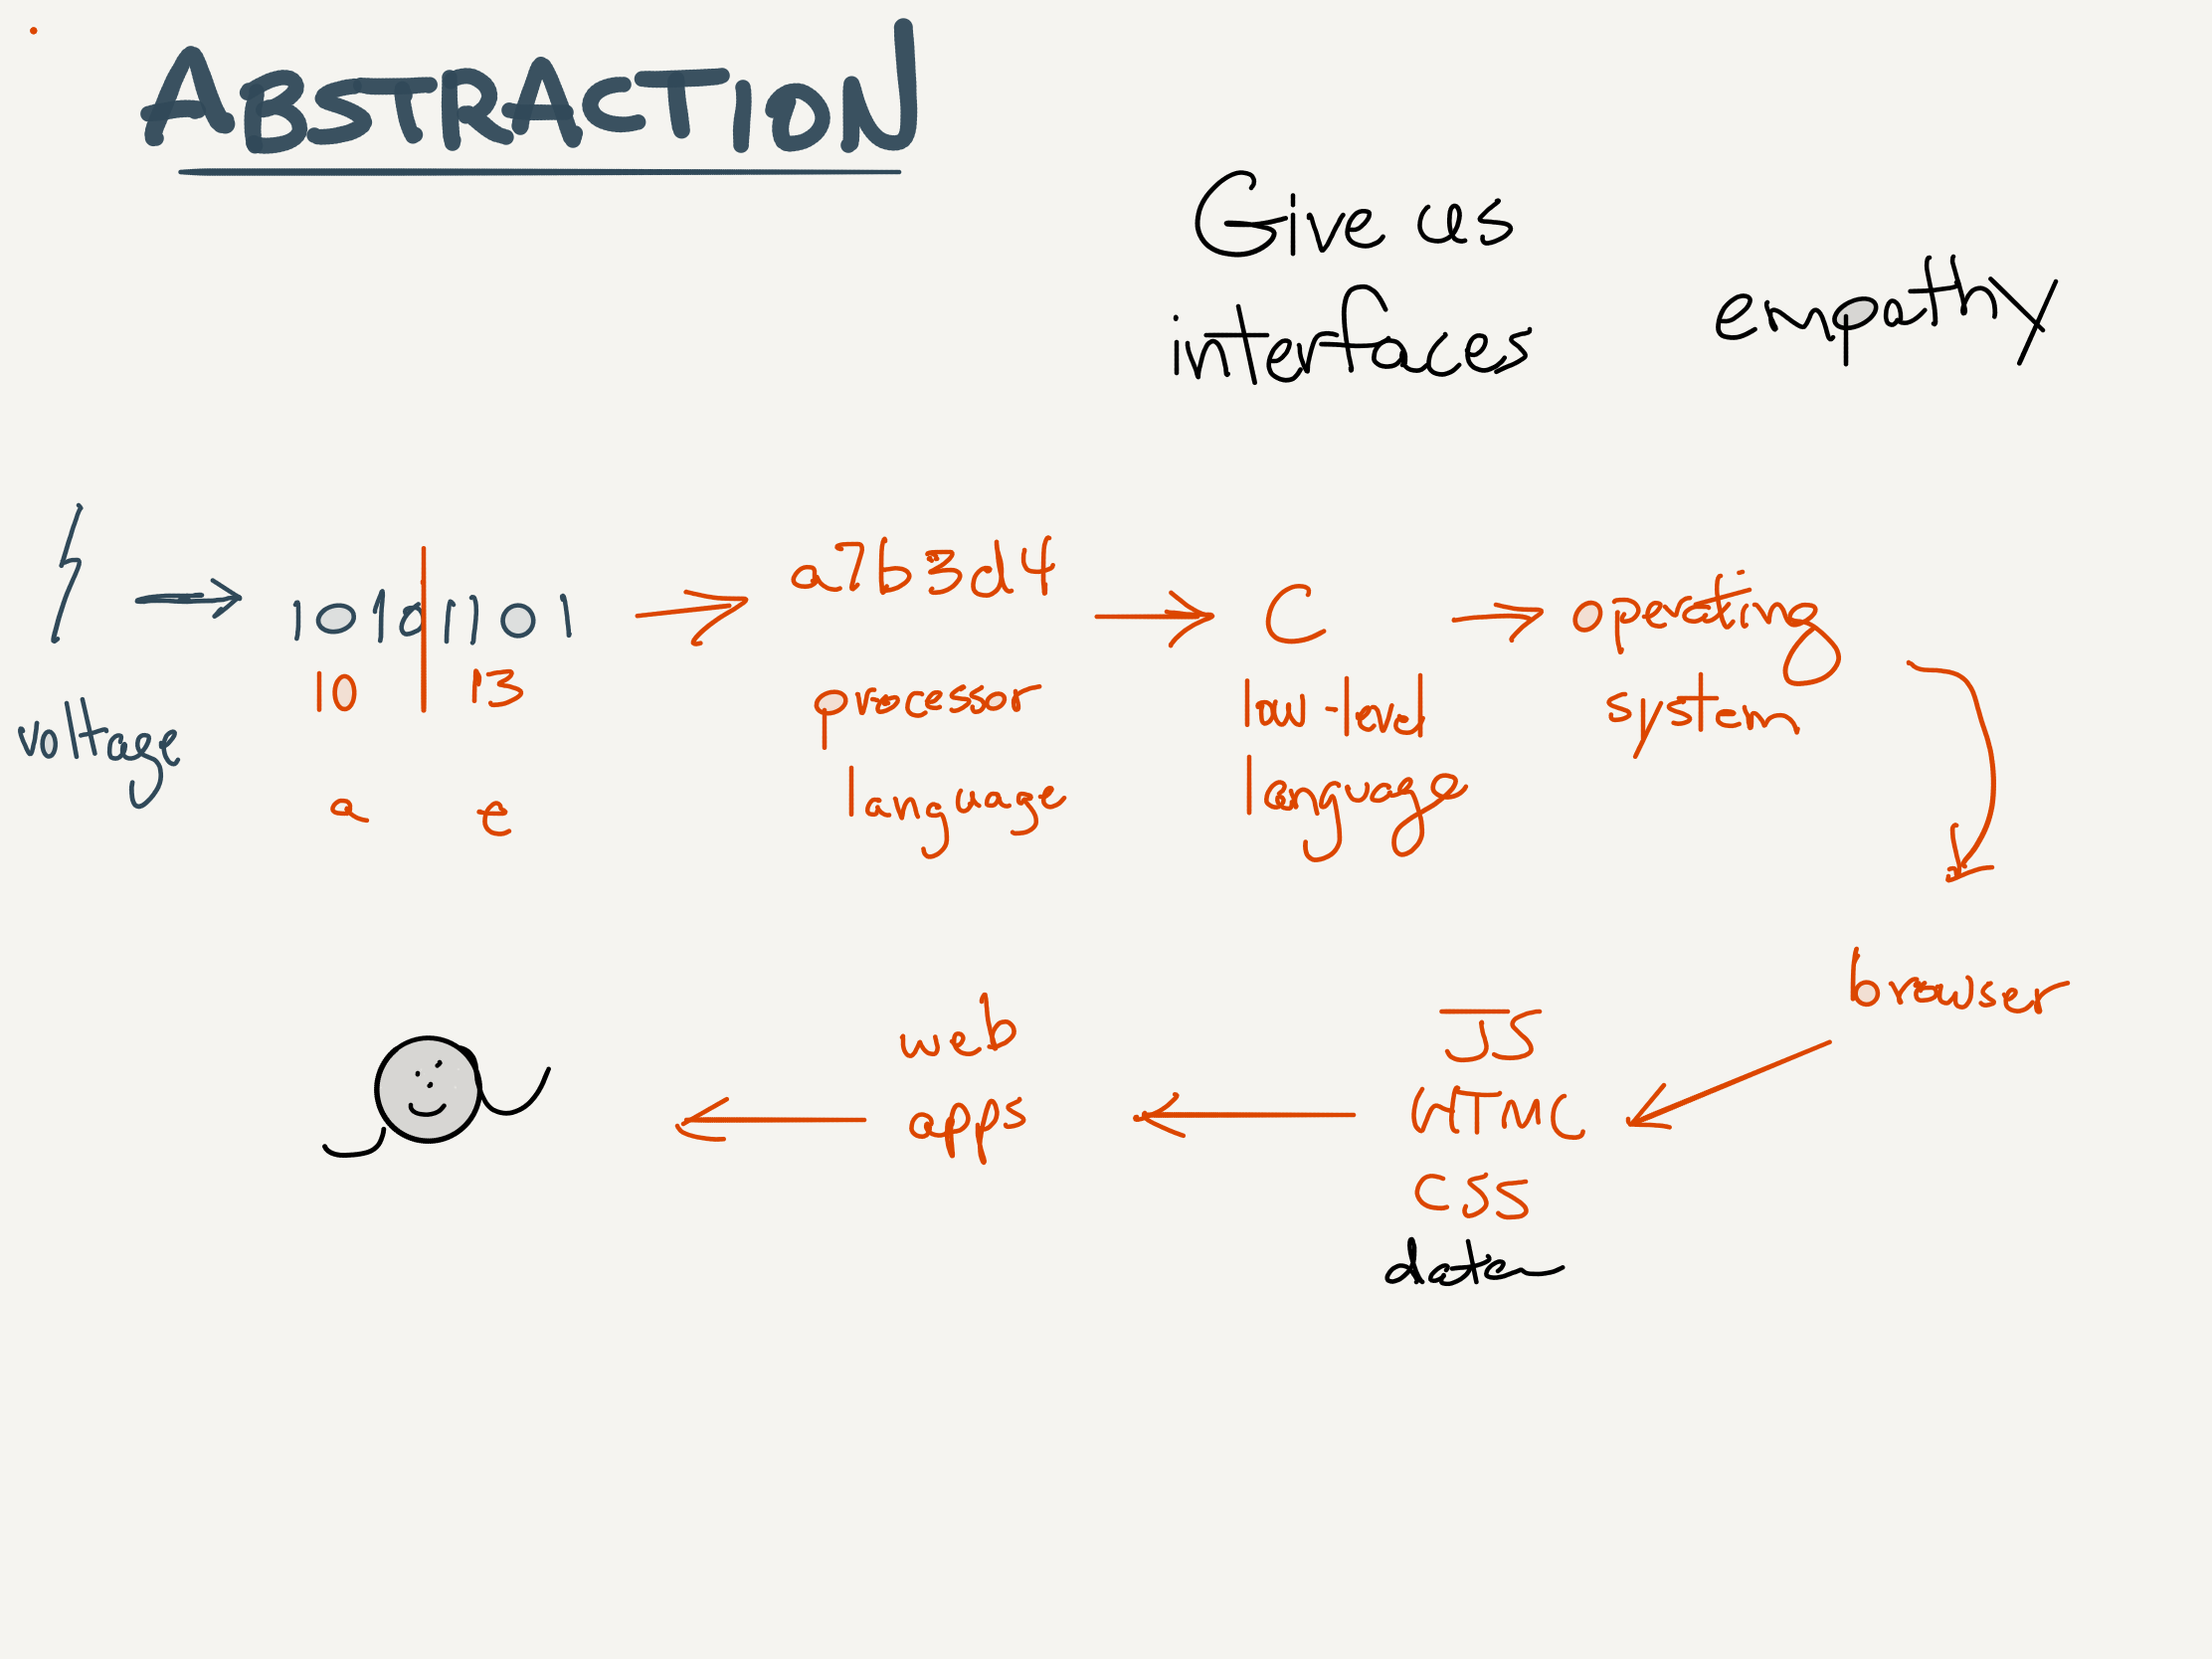 ABSTRACTION
Give us
interfaces
empathy
1010 1101
10 13
a e
voltage
a7b3d4
processor
language
C
low-level
language
operating
system
browser
JS
HTML
CSS
data
web
apps